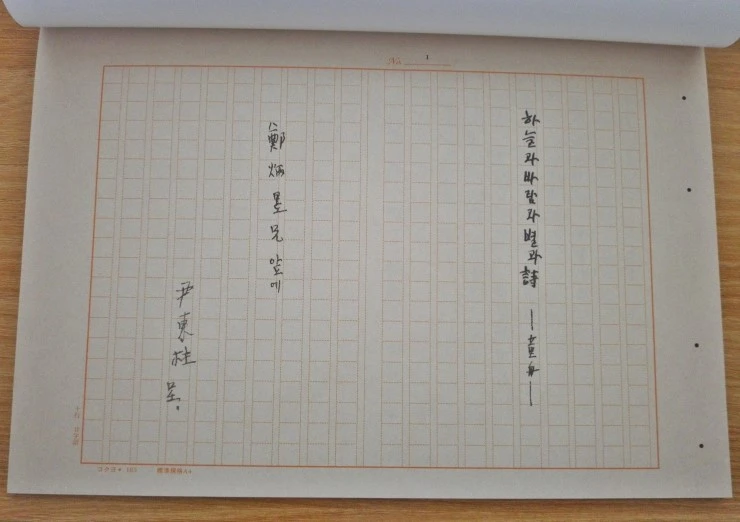 No. 1
하늘과바람과별과詩 —童舟—
鄭炳昱兄앞에
尹東柱 呈.
標準規格A4